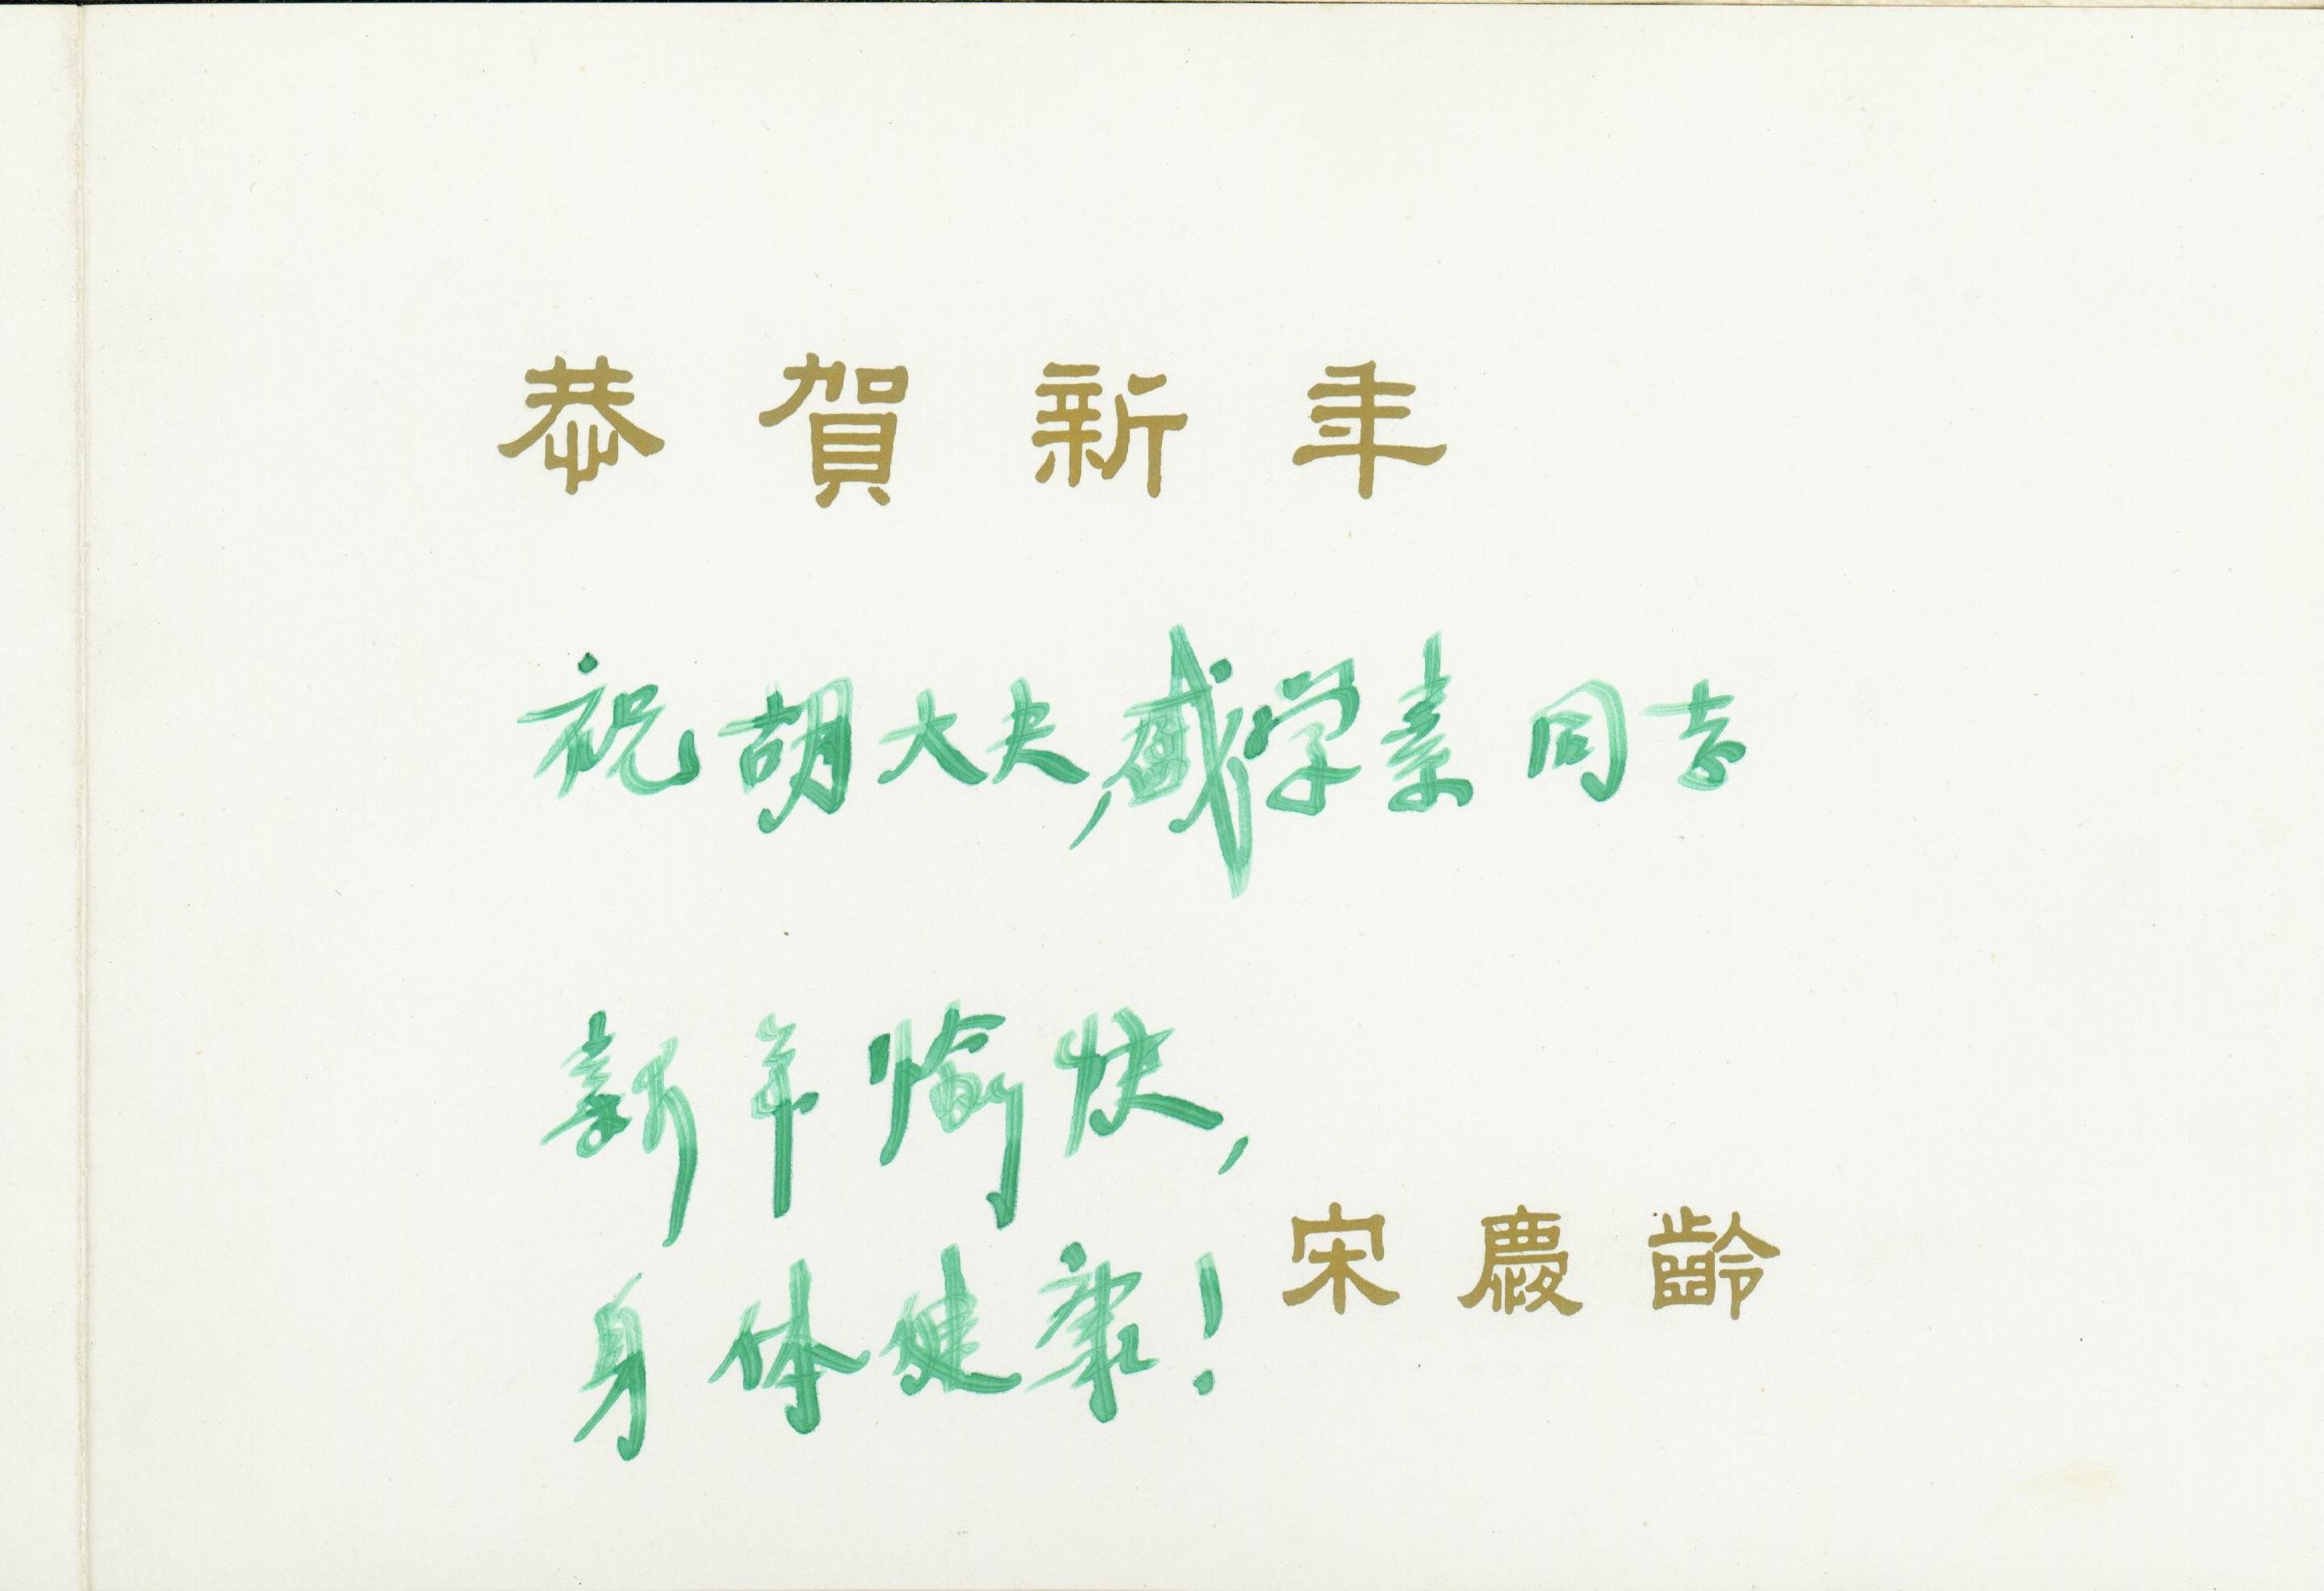 恭賀新年
祝胡大夫,学素同志
新年愉快,
身体健康!
宋慶齡